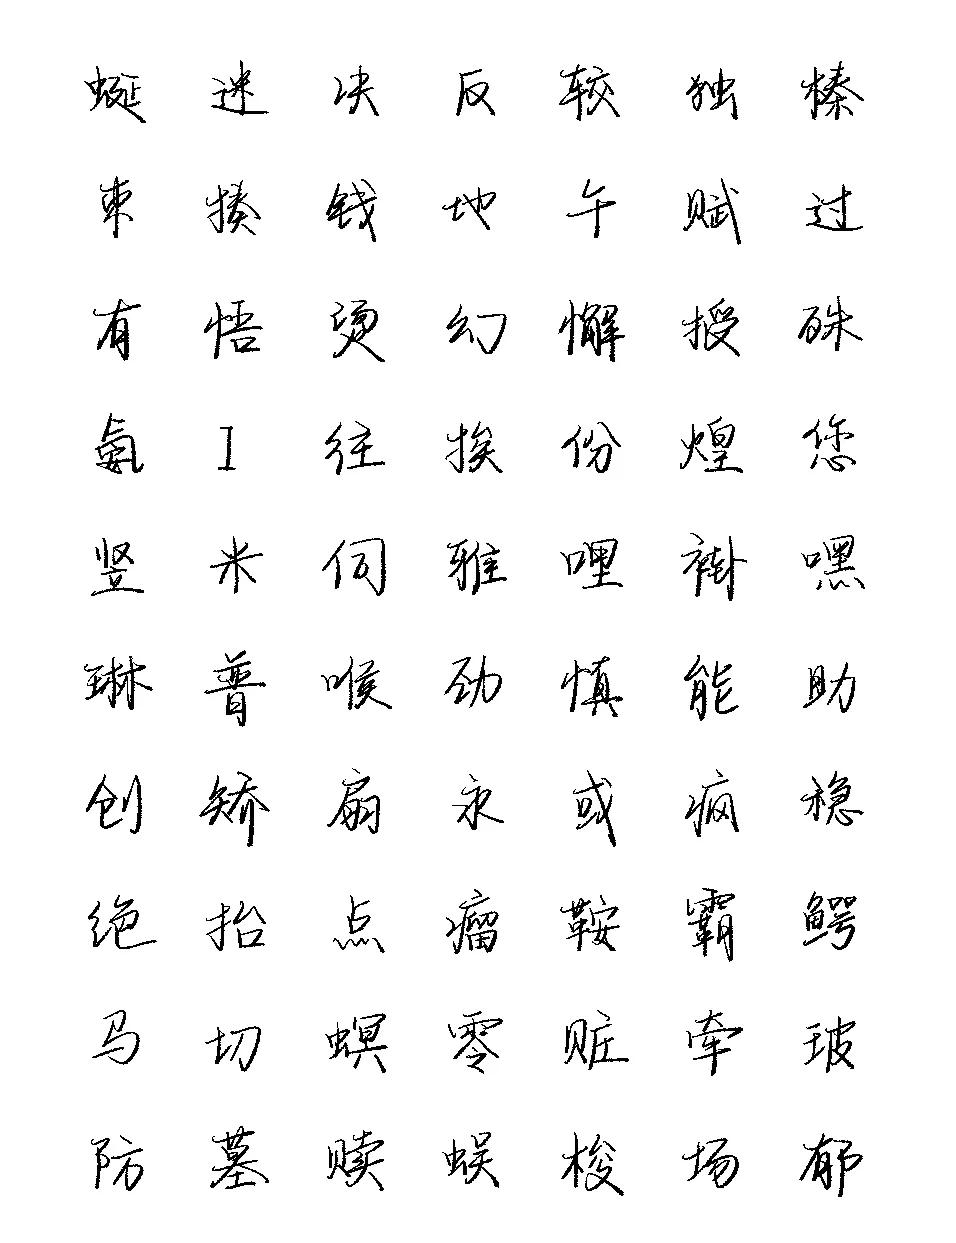 蜒迷决反较独榛
束揍钱地午赋过
有悟烫幻懈授硃
氨工往挨份煌您
竖米伺雅哩褂嘿
琳普喉劲慎能助
创矫扇永或疯稳
绝抬点瘤鞍霸鳄
马切螟零赃牵玻
防墓赎蜈梭场郁